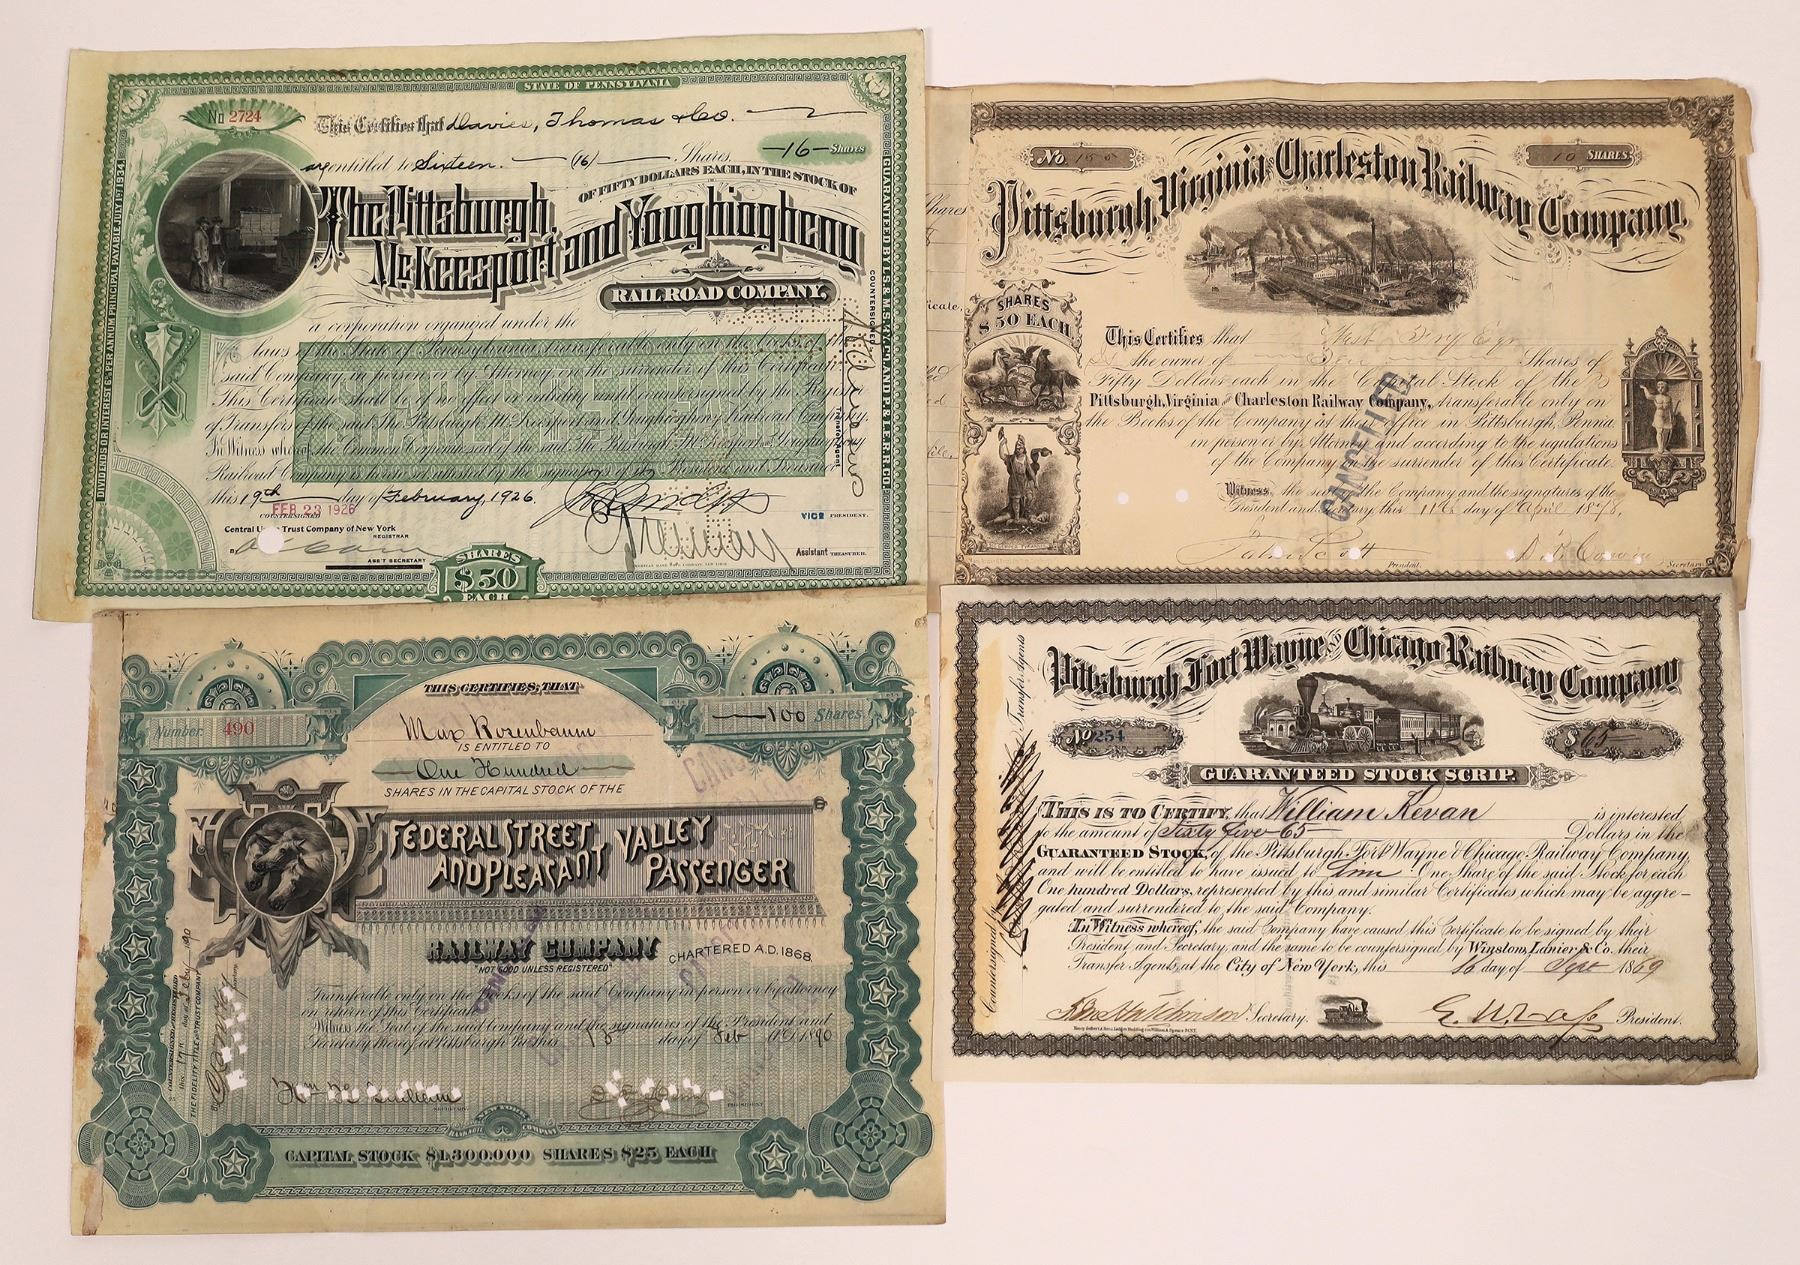 STATE OF PENNSYLVANIA
No 2724
This Certifies that Davies, Thomas & Co.
are entitled to Sixteen (16) Shares
-16- Shares
OF FIFTY DOLLARS EACH, IN THE STOCK OF
The Pittsburgh,
McKeesport and Youghiogheny
RAILROAD COMPANY,
a corporation organized under the
laws of the State of Pennsylvania transferable only on the books of the
said Company in person or by Attorney on the surrender of this Certificate
This Certificate shall be of no effect or validity until countersigned by the Registrar
of Transfers of the said The Pittsburgh McKeesport and Youghiogheny Railroad Company
In Witness whereof the Common Corporate seal of the said The Pittsburgh McKeesport and Youghiogheny
Railroad Company is hereto attested by the signatures of its President and Treasurer
this 19th day of February, 1926.
COUNTERSIGNED
FEB 23 1926
Central Trust Company of New York
REGISTRAR
By
ASS'T SECRETARY
VICE PRESIDENT.
Assistant TREASURER.
SHARES
$50
EACH
DIVIDENDS OR INTEREST 6% PER ANNUM, PRINCIPAL PAYABLE, JULY 1ST 1934.
GUARANTEED BY L.S. & M.S. R'Y CO. AND P. & L.E. R.R. CO.
COUNTERSIGNED
Transfer Agent
No. 155
10 SHARES
Pittsburgh, Virginia & Charleston Railway Company,
SHARES
$50 EACH
This Certifies that West Fry Esqr
is the owner of Ten Shares of
Fifty Dollars each in the Capital Stock of the
Pittsburgh, Virginia and Charleston Railway Company, transferable only on
the Books of the Company at their Office in Pittsburgh, Penn'a
in person or by Attorney and according to the regulations
of the Company on the surrender of this Certificate.
Witness, the seal of the Company and the signatures of the
President and Secretary, this 11th day of April 1878.
CANCELLED
President.
Secretary.
THIS CERTIFIES THAT
Number 490
100 Shares
Max Rosenbaum
IS ENTITLED TO
One Hundred
SHARES IN THE CAPITAL STOCK OF THE
FEDERAL STREET
AND PLEASANT VALLEY
PASSENGER
RAILWAY COMPANY
CHARTERED A.D. 1868.
"NOT GOOD UNLESS REGISTERED"
Transferable only on the Books of the said Company in person or by attorney
on return of this Certificate.
Witness the Seal of the said Company and the signatures of the President and
Secretary thereof at Pittsburgh Pa. this 15 day of Feb A.D. 1890
SECRETARY
PRESIDENT
NEW YORK
BANK NOTE COMPANY
CAPITAL STOCK $1,300.000 SHARES $25 EACH
THE FIDELITY TITLE & TRUST COMPANY
Pittsburgh Fort Wayne and Chicago Railway Company
No 254
$65
GUARANTEED STOCK SCRIP.
THIS IS TO CERTIFY, that William Kevan is interested
to the amount of Sixty five 65 Dollars in the
GUARANTEED STOCK, of the Pittsburgh Fort Wayne & Chicago Railway Company,
and will be entitled to have issued to him One Share of the said Stock for each
One hundred Dollars, represented by this and similar Certificates which may be aggre-
gated and surrendered to the said Company.
In Witness whereof, the said Company have caused this Certificate to be signed by their
President and Secretary, and the same to be countersigned by Winslow, Lanier & Co. their
Transfer Agents, at the City of New York, this 16 day of Sept 1869
Secretary.
President.
Countersigned by
Transfer Agents